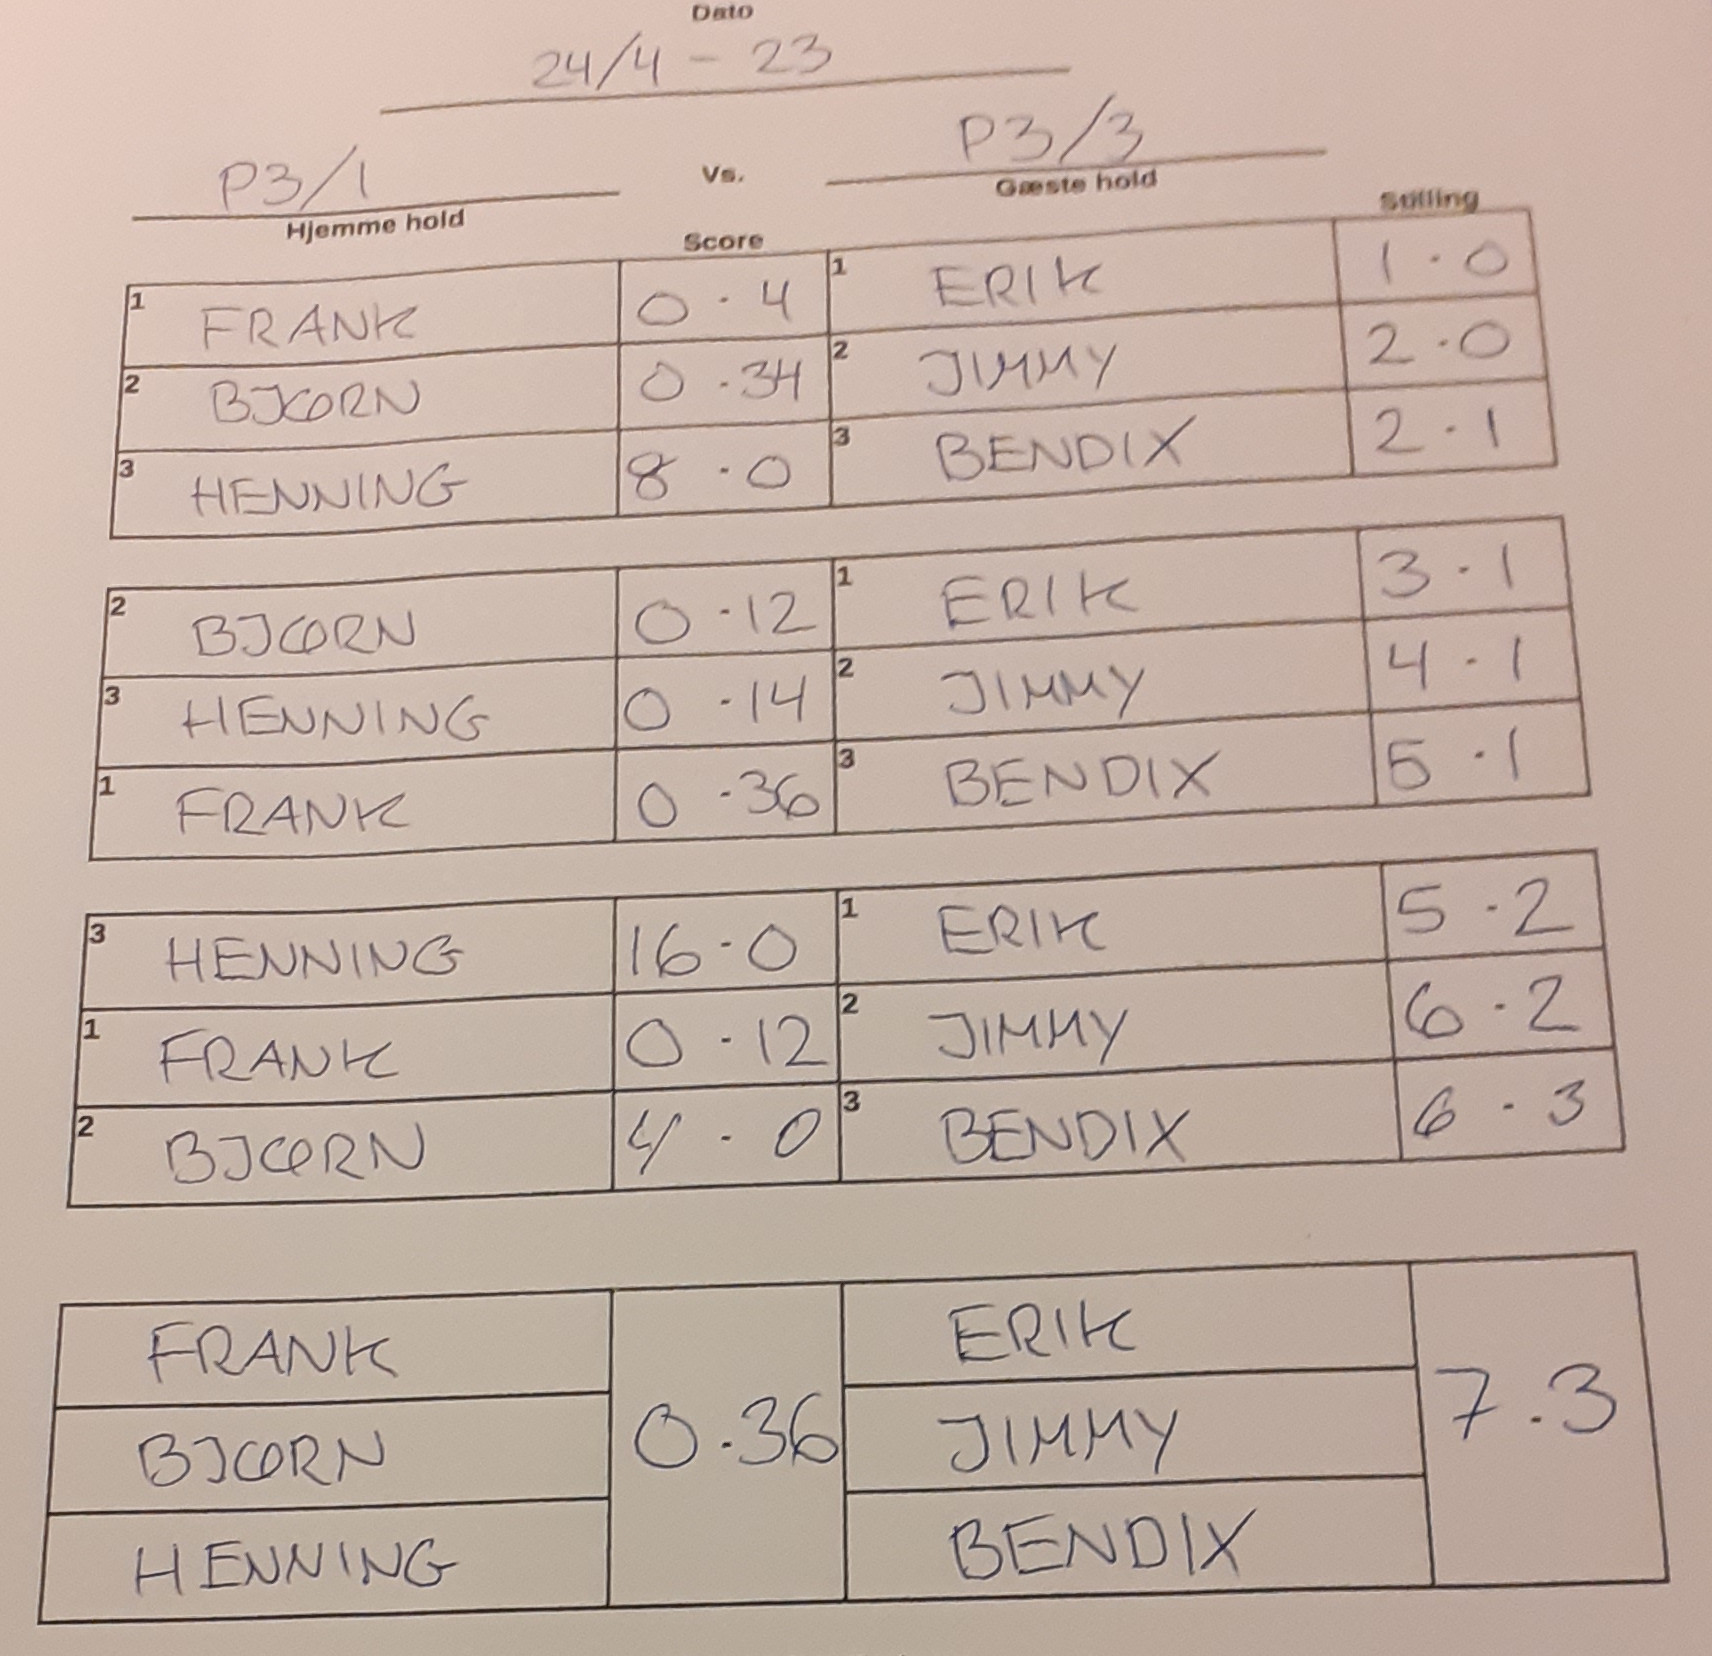 Dato
24/4 - 23
P3/1 Vs. P3/3
Hjemme hold Gæste hold
Score Stilling
1 FRANK 0 · 4 1 ERIK 1 · 0
2 BJØRN 0 · 34 2 JIMMY 2 · 0
3 HENNING 8 · 0 3 BENDIX 2 · 1
2 BJØRN 0 · 12 1 ERIK 3 · 1
3 HENNING 0 · 14 2 JIMMY 4 · 1
1 FRANK 0 · 36 3 BENDIX 5 · 1
3 HENNING 16 · 0 1 ERIK 5 · 2
1 FRANK 0 · 12 2 JIMMY 6 · 2
2 BJØRN 4 · 0 3 BENDIX 6 · 3
FRANK ERIK
BJØRN 0.36 JIMMY 7.3
HENNING BENDIX